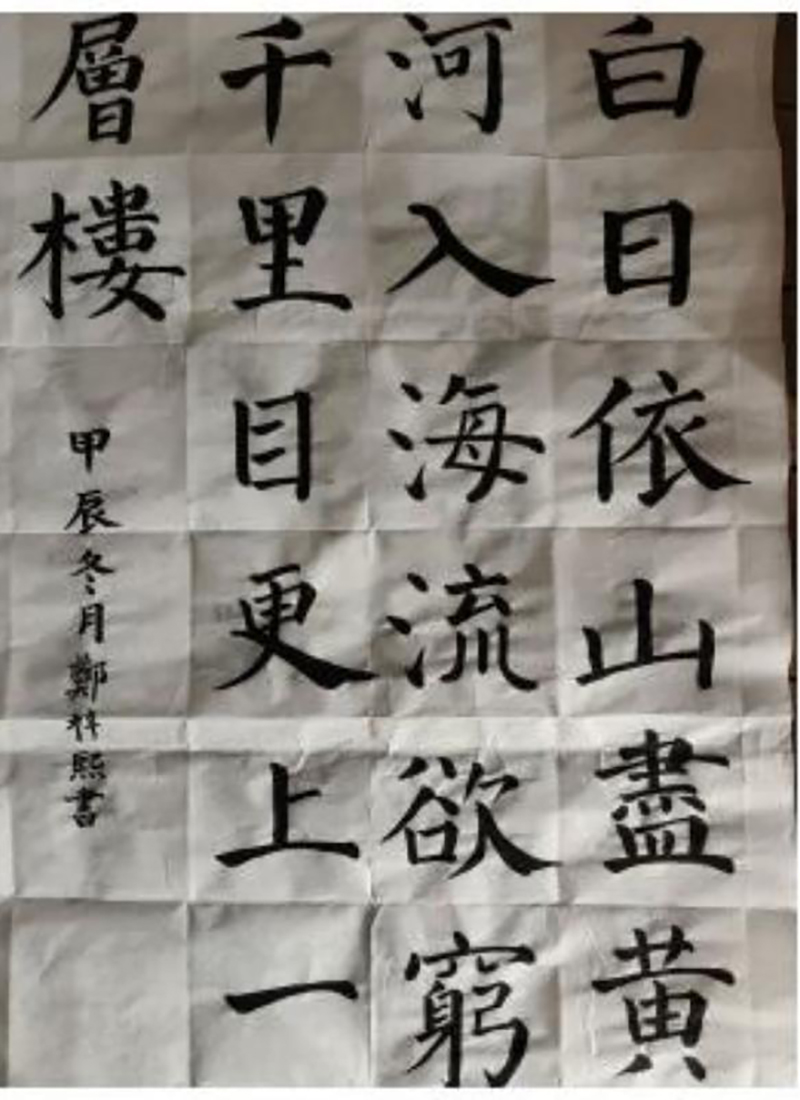 白日依山盡黄
河入海流欲窮
千里目更上一
層樓
甲辰冬月鄭祥熙書